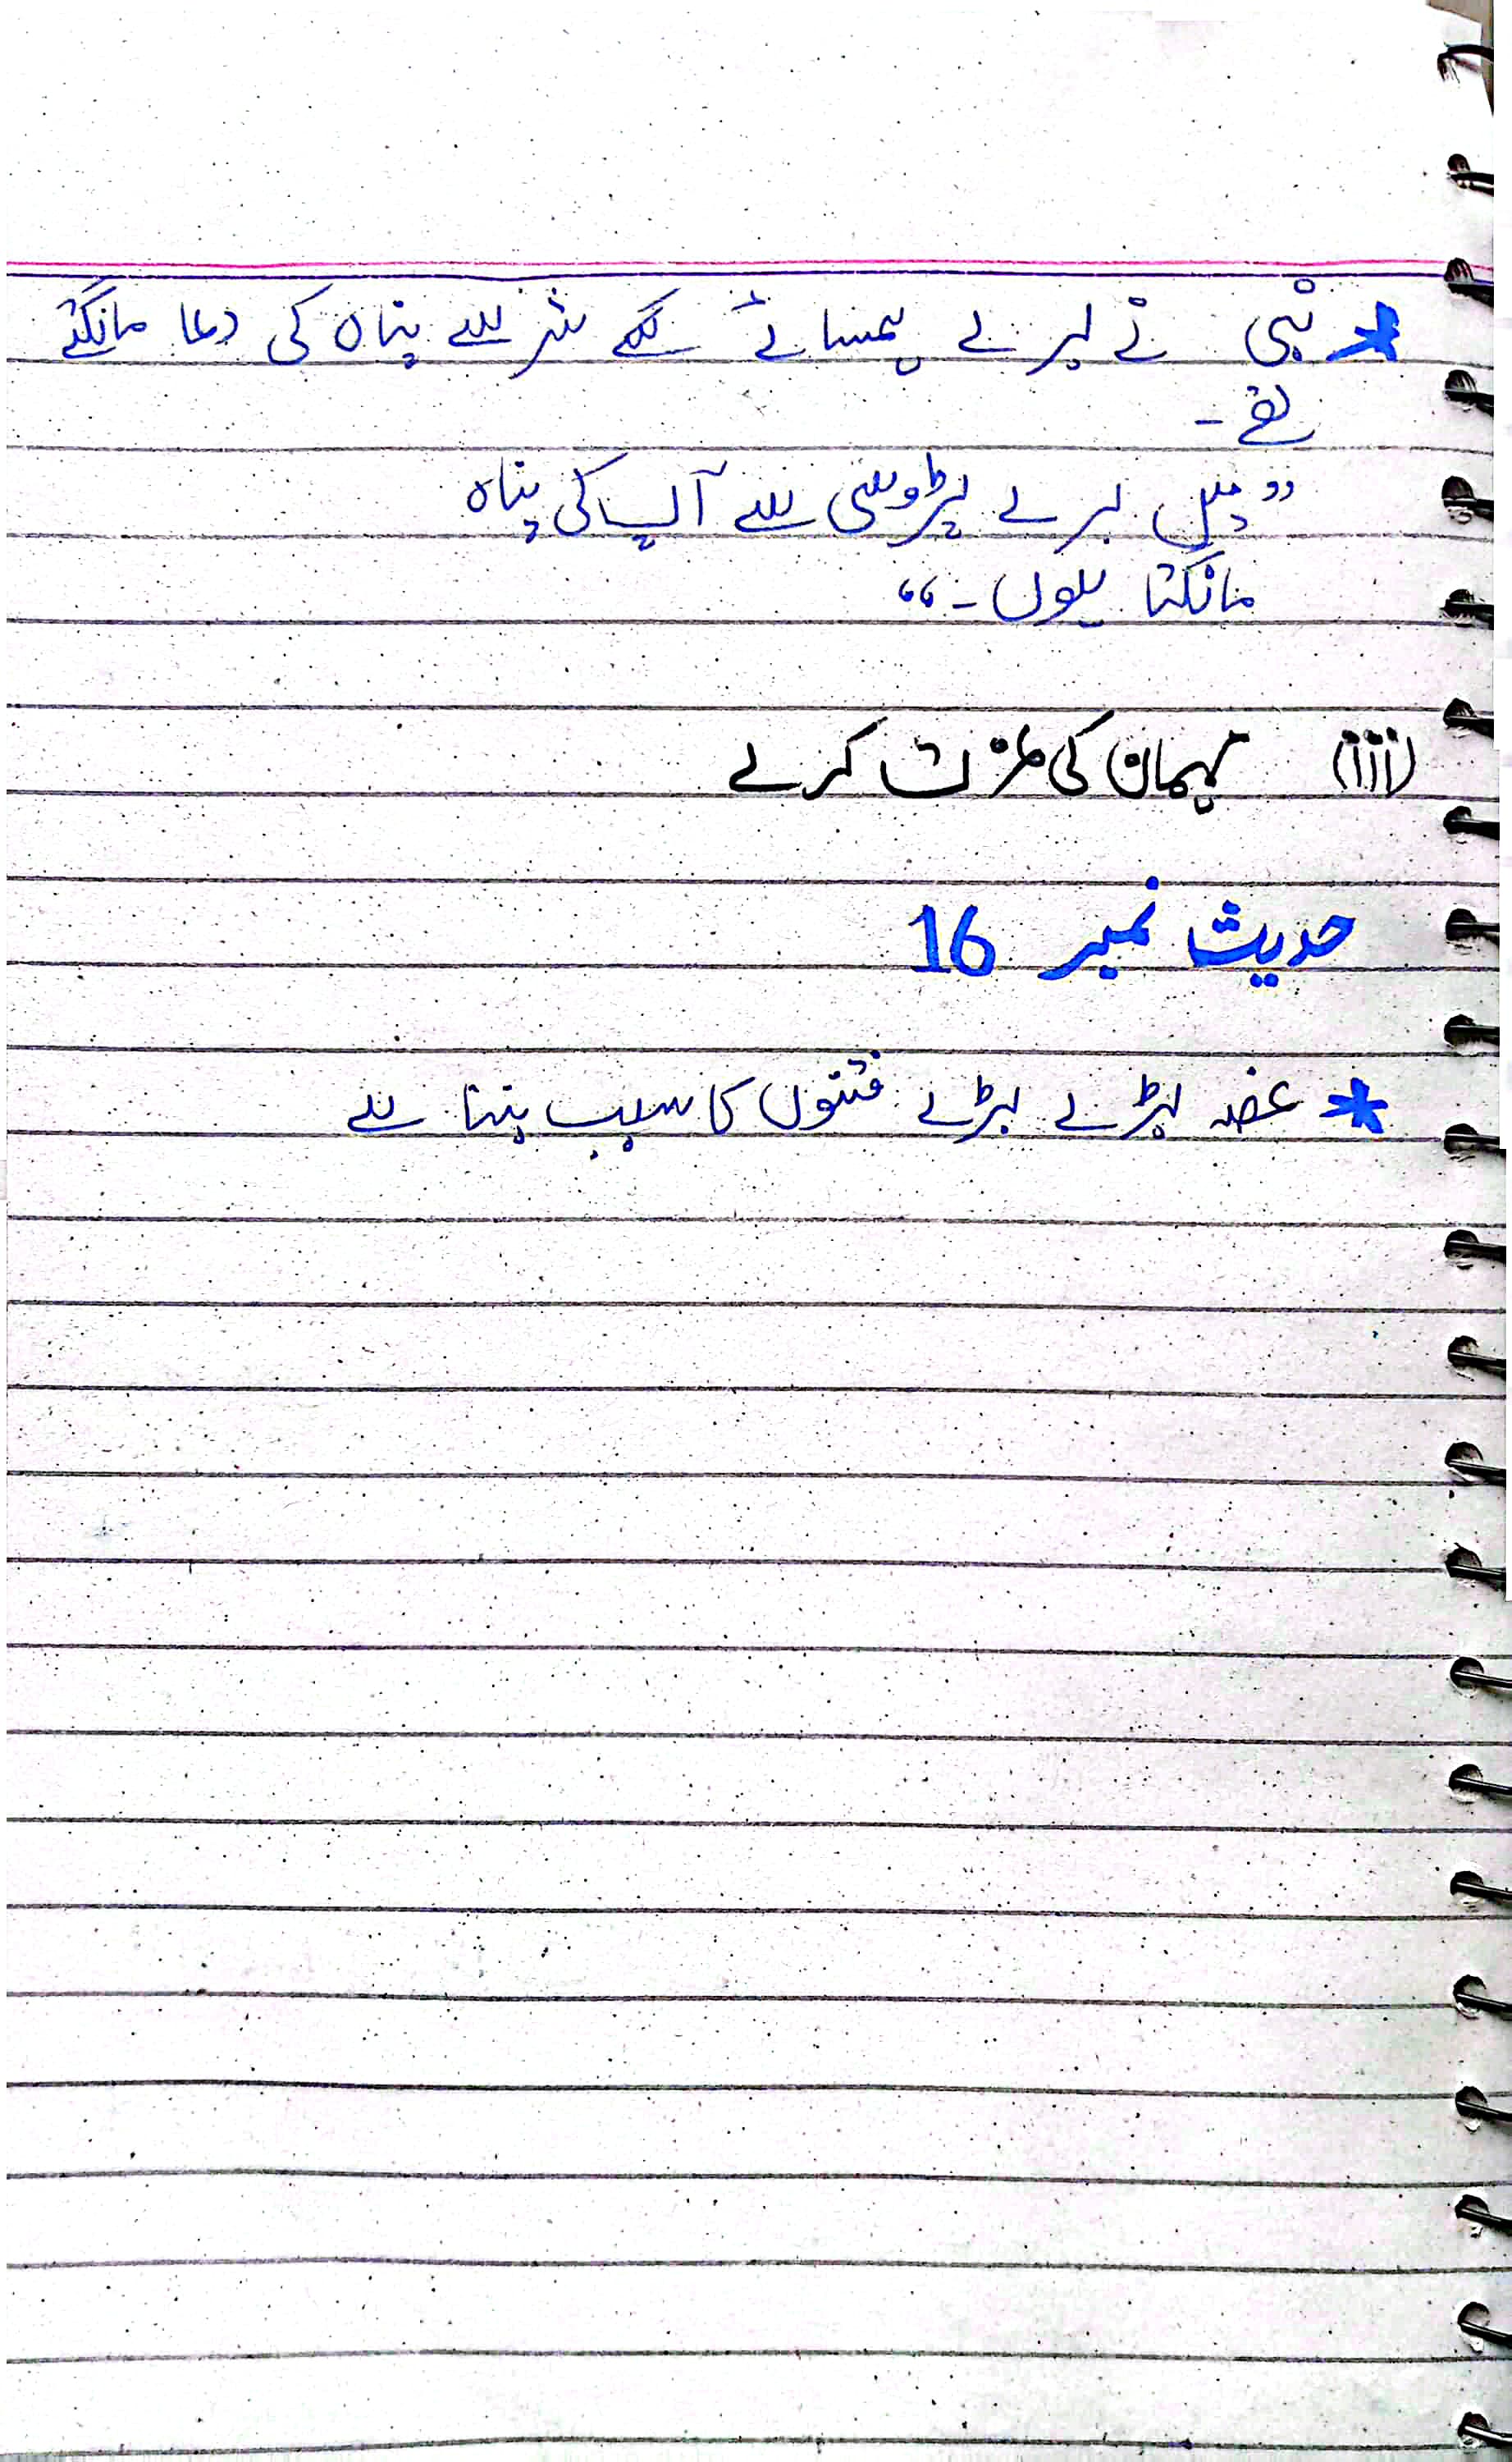 * نبی نے برے ہمسائے کے شر سے پناہ کی دعا مانگتے
تھے۔
"میں برے پڑوسی سے آپ کی پناہ
مانگتا ہوں۔"
(iii) مہمان کی عزت کرے
حدیث نمبر 16
* غصہ بڑے بڑے فتنوں کا سبب بنتا ہے